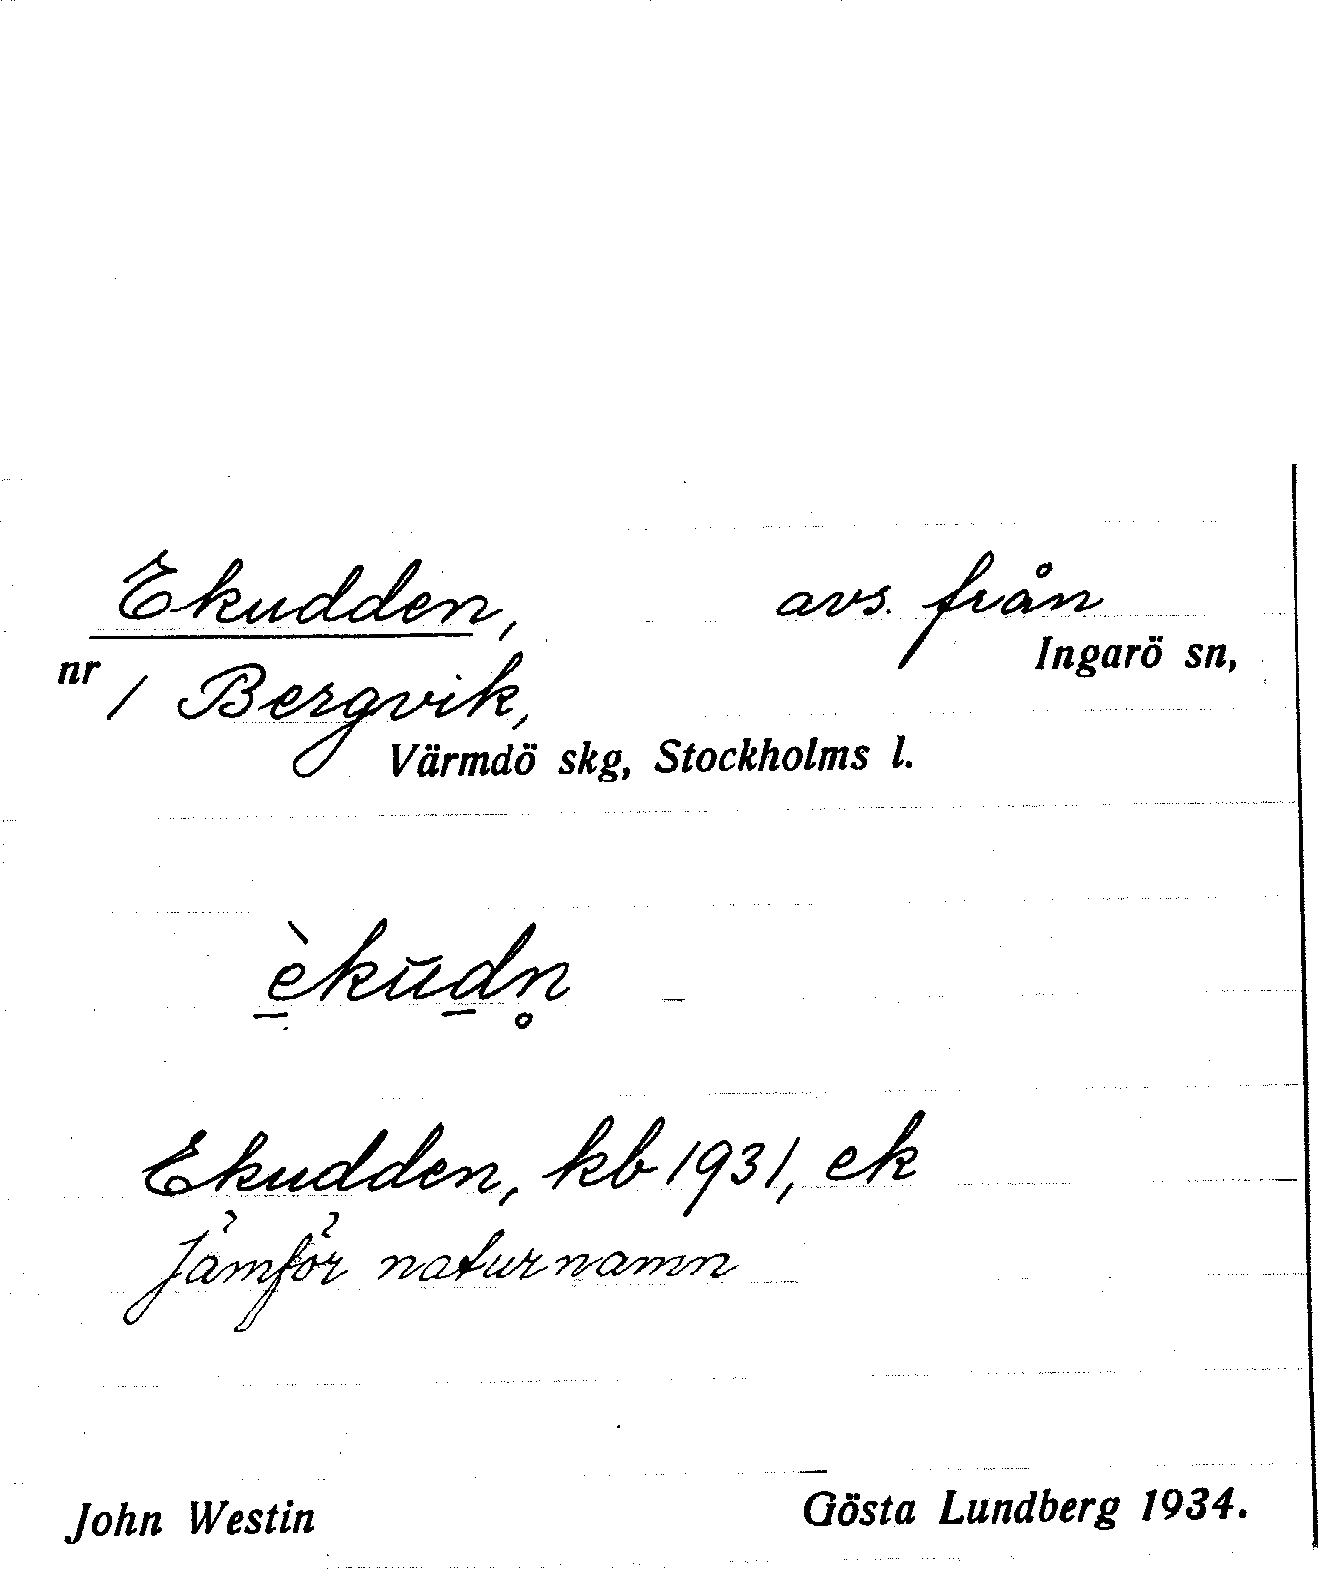 Ekudden, avs. från
Ingarö sn,
nr 1 Bergvik,
Värmdö skg, Stockholms l.
è̱kūḏn̥
Ekudden, kb 1931, ek
Jämför naturnamn
John Westin Gösta Lundberg 1934.